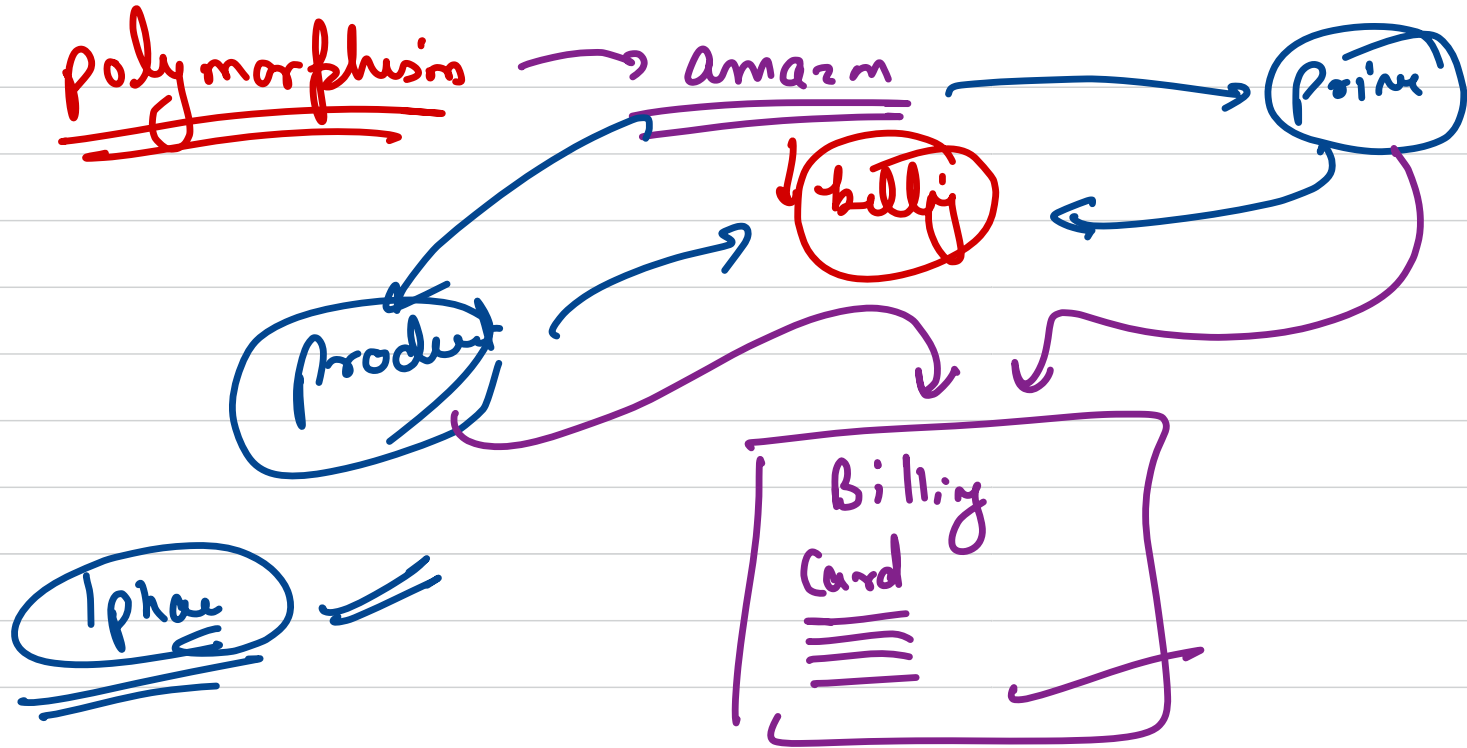 polymorphism
amazon
Prime
billing
product
Billing
Card
Iphone